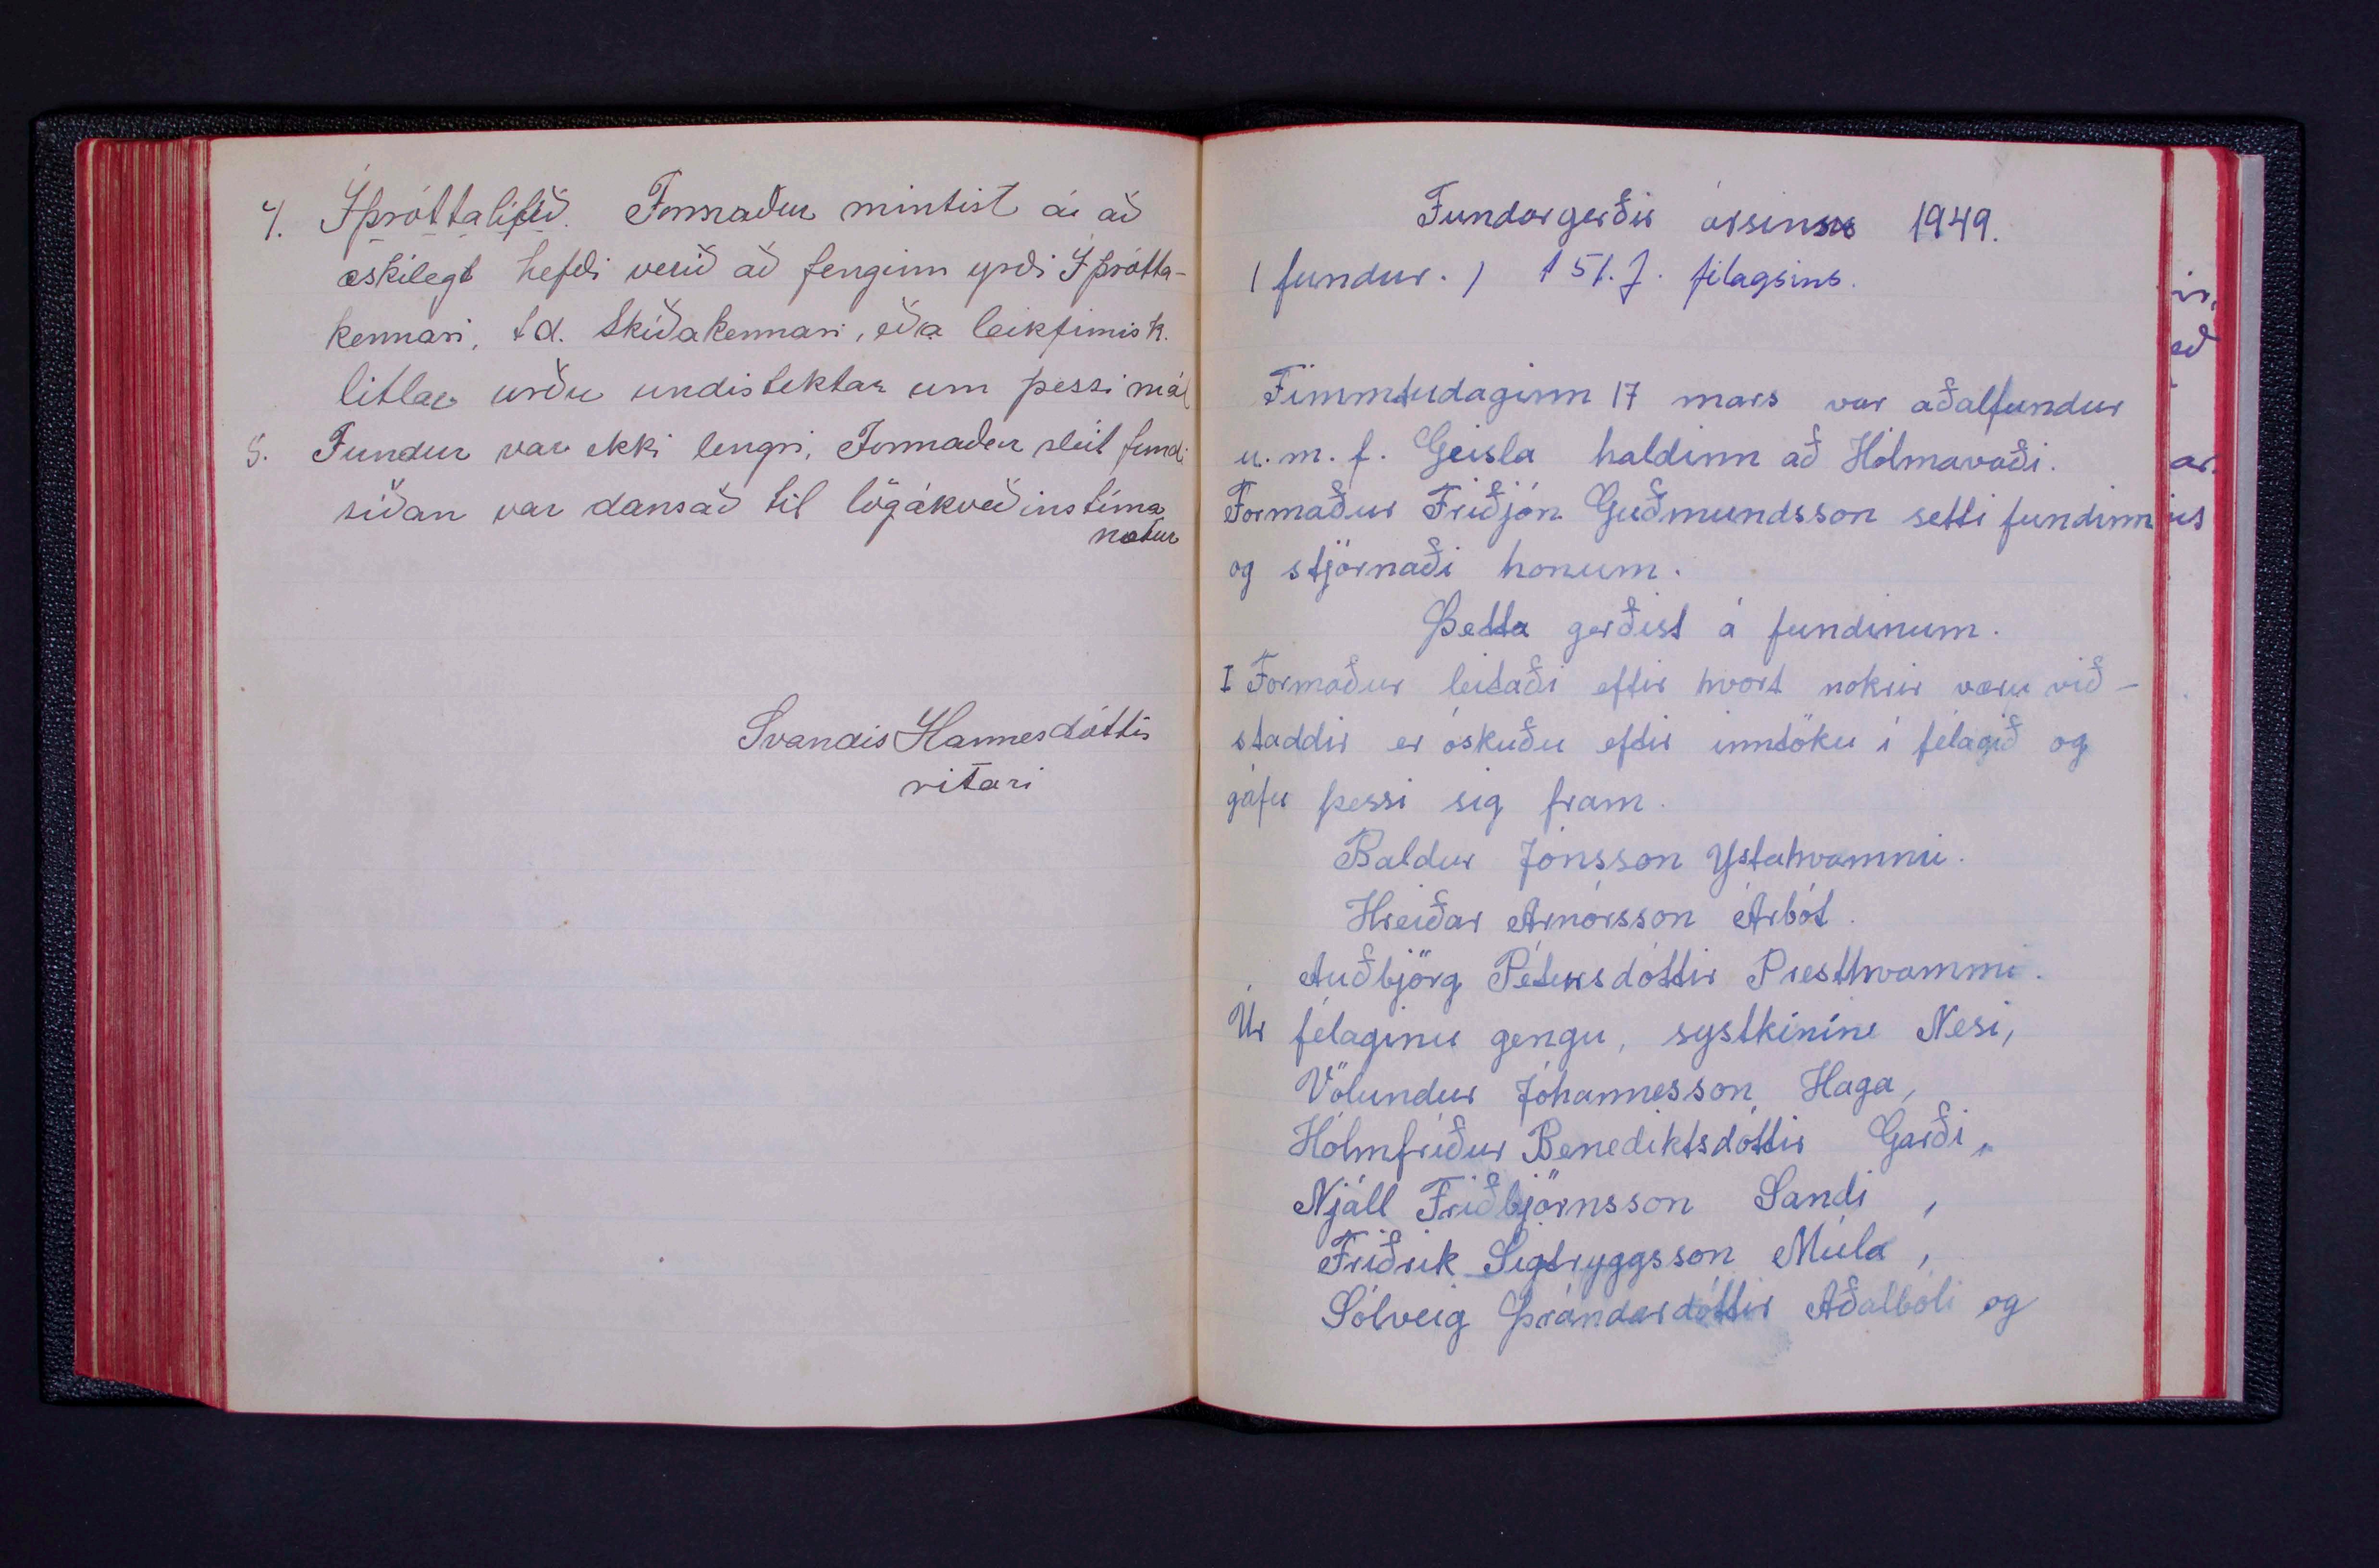 4. Íþróttalífið. Formaður mintist á að
æskilegt hefði verið að fenginn yrði Íþrótta-
kennari, t d. Skíðakennari, eða leikfimisk.
litlar urðu undirtektar um þessi mál
5. Fundur var ekki lengri, Formaður sleit fundi
síðan var dansað til lögákveðins tíma
nætur
Svandís Hannesdóttir
ritari
Fundargerðir ársins 1949.
1 fundur. / 151. f. félagsins.
Fimmtudaginn 17 mars var aðalfundur
u. m. f. Geisla haldinn að Hólmavaði.
Formaður Friðjón Guðmundsson setti fundinn
og stjórnaði honum.
Þetta gerðist á fundinum.
I Formaður leitaði eftir hvort nokrir væru við-
staddir er óskuðu eftir inntöku í félagið og
gáfu þessi sig fram.
Baldur Jónsson Ystahvammi.
Hreiðar Arnórsson Árbót.
Auðbjörg Pétursdóttir Presthvammi.
Úr félaginu gengu, systkinine Nesi,
Völundur Jóhannesson Haga,
Hólmfríður Benediktsdóttir Garði,
Njáll Friðbjörnsson Sandi,
Friðrik Sigtryggsson Múla,
Sólveig Þrándardóttir Aðalbóli og